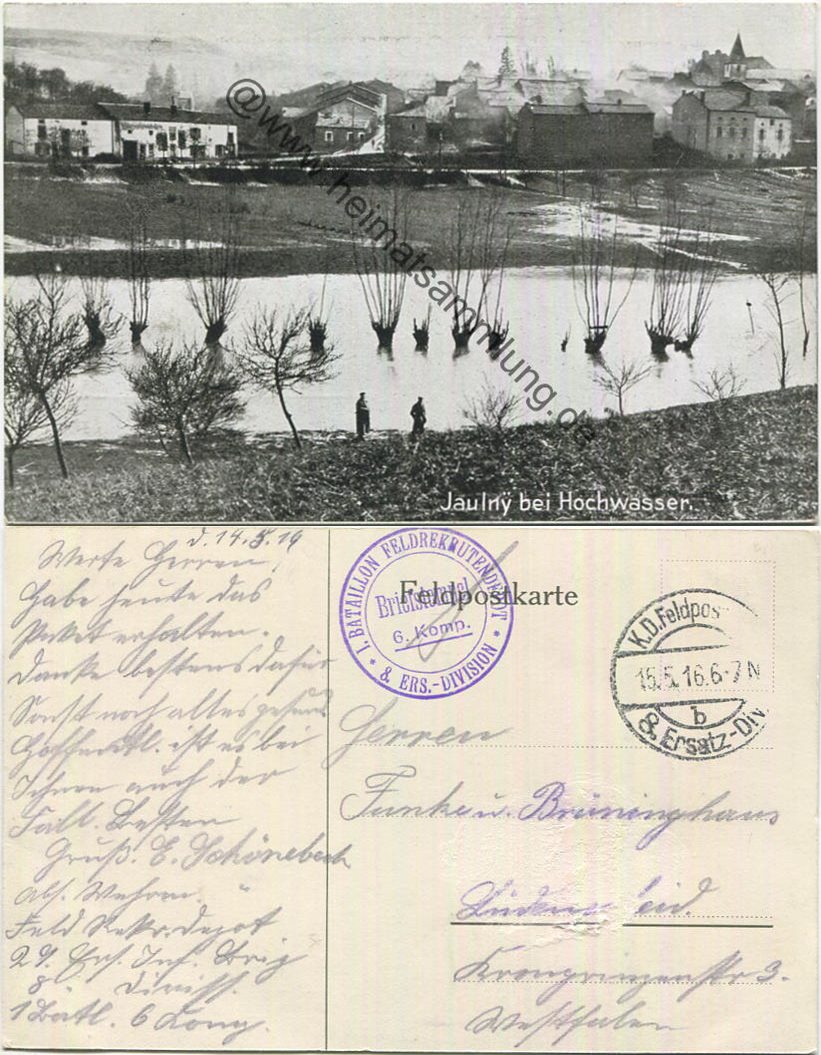 @www.heimatsammlung.de
Jaulnÿ bei Hochwasser.
d. 14.5.16
Werte Herren!
Habe heute das
Paket erhalten.
Danke bestens dafür
Sonst noch alles gesund
Hoffentl. ist es bei
Ihnen auch der
Fall. Besten
Gruß. E. Schönebeck
abs. Wehrm.
Feld Rekr. Depot
29. Ers. Inf. Brig
8. Divis.
1 Batl. 6 Komp.
Feldpostkarte
I. BATAILLON FELDREKRUTENDEPOT
Briefstempel
6. Komp.
* 8. ERS.-DIVISION *
K.D. Feldpos
15.5.16.6-7N
b
8. Ersatz-Div.
Herren
Funke u. Brüninghaus
Lüdenscheid.
Kronprinzenstr 3.
Westfalen